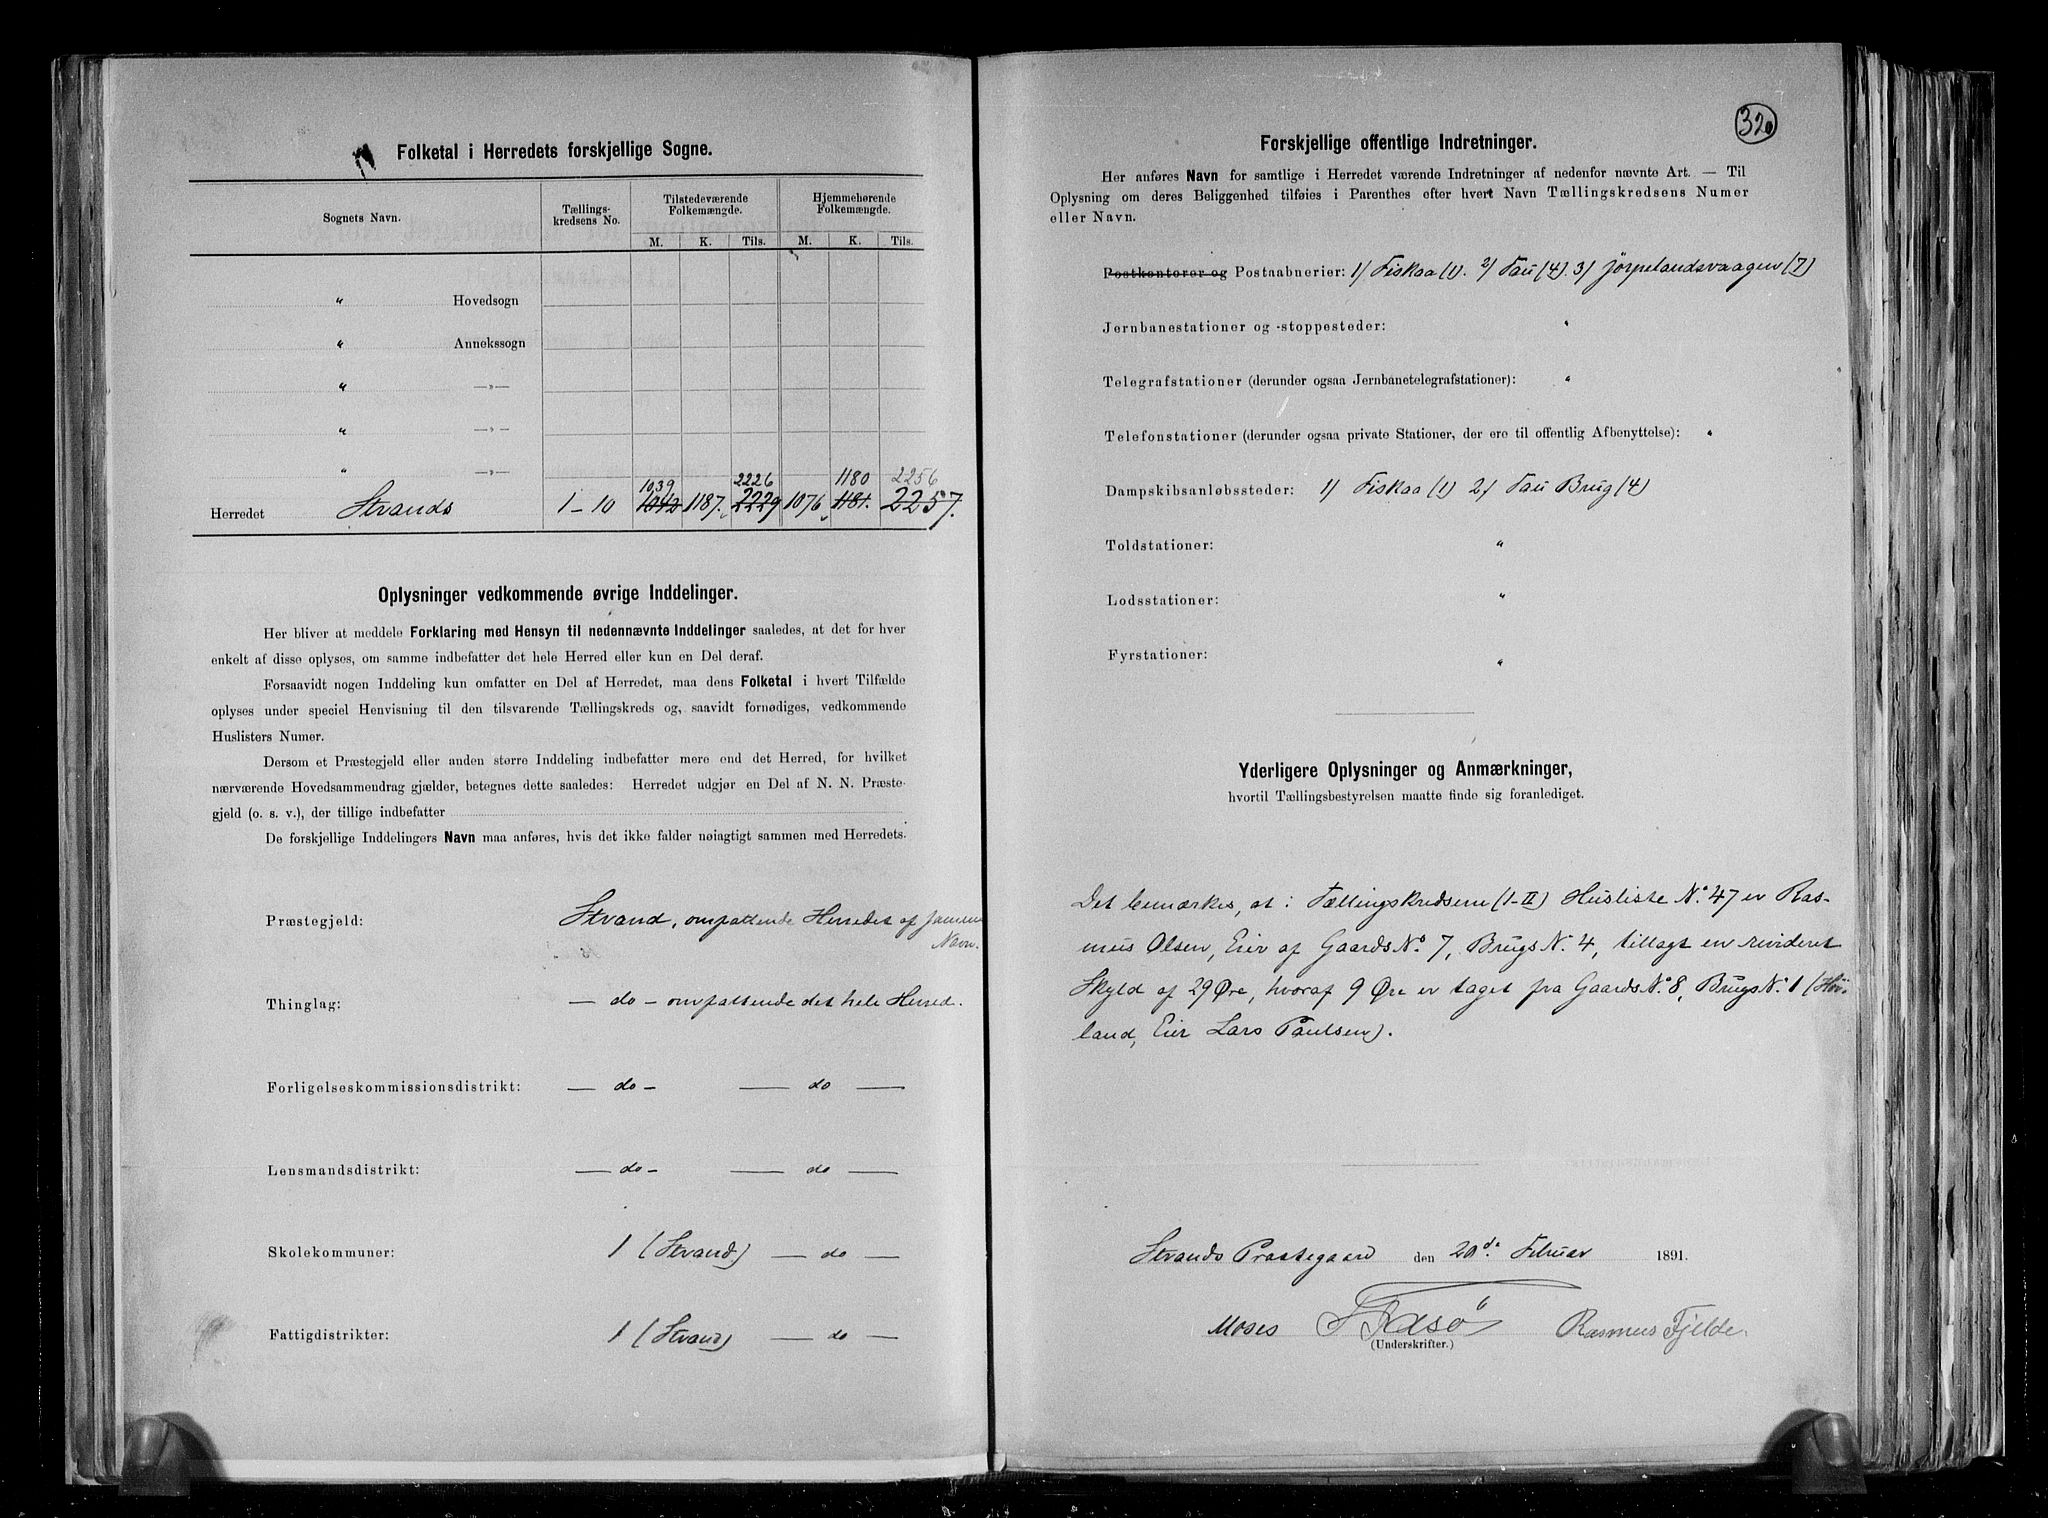 Folketal i Herredets forskjellige Sogne.
Sognets Navn. Tællings-kredsens No. Tilstedeværende Folkemængde. Hjemmehørende Folkemængde.
M. K. Tils. M. K. Tils.
" Hovedsogn
" Annekssogn
" —"—
" —"—
" —"—
1039 2226 1180 2256
Herredet Strands 1–10 1042 1187. 2229 1076 1181. 2257.
Oplysninger vedkommende øvrige Inddelinger.
Her bliver at meddele Forklaring med Hensyn til nedennævnte Inddelinger saaledes, at det for hver
enkelt af disse oplyses, om samme indbefatter det hele Herred eller kun en Del deraf.
Forsaavidt nogen Inddeling kun omfatter en Del af Herredet, maa dens Folketal i hvert Tilfælde
oplyses under speciel Henvisning til den tilsvarende Tællingskreds og, saavidt fornødiges, vedkommende
Huslisters Numer.
Dersom et Præstegjeld eller anden større Inddeling indbefatter mere end det Herred, for hvilket
nærværende Hovedsammendrag gjælder, betegnes dette saaledes: Herredet udgjør en Del af N. N. Præste-
gjeld (o. s. v.), der tillige indbefatter
De forskjellige Inddelingers Navn maa anføres, hvis det ikke falder nøiagtigt sammen med Herredets.
Præstegjeld: Strand, omfattende Herredet af samme
Navn.
Thinglag: — do — omfattende det hele Herred.
Forligelseskommissionsdistrikt: — do — — do —
Lensmandsdistrikt: — do — — do —
Skolekommuner: 1 (Strand) — do —
Fattigdistrikter: 1 (Strand) — do —
320
Forskjellige offentlige Indretninger.
Her anføres Navn for samtlige i Herredet værende Indretninger af nedenfor nævnte Art. — Til
Oplysning om deres Beliggenhed tilføies i Parenthes efter hvert Navn Tællingskredsens Numer
eller Navn.
Postkontorer og Postaabnerier: 1) Fiskaa (1). 2) Tau (4). 3) Jørpelandsvaagen (7)
Jernbanestationer og -stoppesteder: "
Telegrafstationer (derunder ogsaa Jernbanetelegrafstationer): "
Telefonstationer (derunder ogsaa private Stationer, der ere til offentlig Afbenyttelse): "
Dampskibsanløbssteder: 1) Fiskaa (1) 2) Tau Brug (4)
Toldstationer: "
Lodsstationer: "
Fyrstationer: "
Yderligere Oplysninger og Anmærkninger,
hvortil Tællingsbestyrelsen maatte finde sig foranlediget.
Det bemærkes, at i Tællingskredsene (I–II) Husliste No. 47 er Ras-
mus Olsen, Eier af Gaards No 7, Brugs N. 4, tillagt en revideret
Skyld af 29 Øre, hvoraf 9 Øre er taget fra Gaards No. 8, Brugs No. 1 (Høi-
land, Eier Lars Paulsen).
Strands Præstegaard den 20de Februar 1891.
Moses Rasmus Fjelde.
(Underskrifter.)